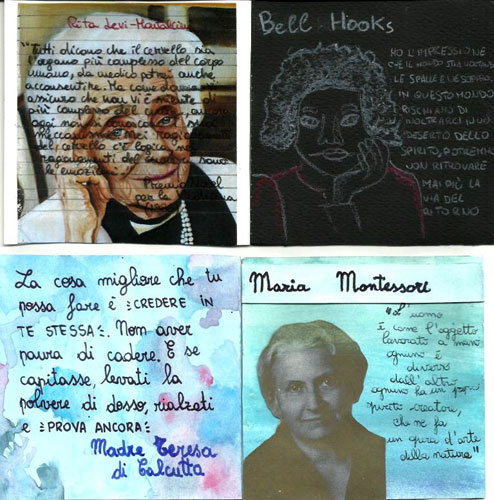 Rita Levi-Montalcini
"Tutti dicono che il cervello sia
l'organo più complesso del corpo
umano, da medico potrei anche
acconsentire. Ma come donna vi
assicuro che non vi è niente di
più complesso del cuore, ancora
oggi non si conoscono i suoi
meccanismi. Nei ragionamenti
del cervello c'è logica, nei
ragionamenti del cuore ci sono
le emozioni".
Premio Nobel
per la medicina
Bell Hooks
HO L'IMPRESSIONE
CHE IL MONDO STIA VOLTANDO
LE SPALLE
IN QUESTO MONDO
RISCHIAMO DI
INOLTRARCI IN UN
DESERTO DELLO
SPIRITO, POTREMMO
NON RITROVARE
MAI PIÙ LA
VIA DEL
RITORNO
La cosa migliore che tu
possa fare è CREDERE IN
TE STESSA. Non aver
paura di cadere. E se
capitasse, levati la
polvere di dosso, rialzati
e PROVA ANCORA
Madre Teresa
di Calcutta
Maria Montessori
"L'uomo
è come l'oggetto
lavorato a mano
ognuno è
diverso
dall'altro
ognuno ha un proprio
spirito creatore,
che ne fa
un opera d'arte
della natura"